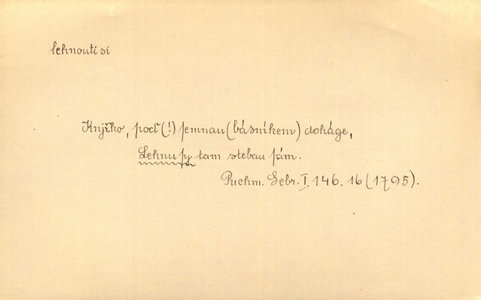 lehnouti si
Knjžko, poď (!) semnau (básníkem) doháge,
Lehnu sy tam stebau sám.
Puchm. Sebr. I, 146. 16 (1795).